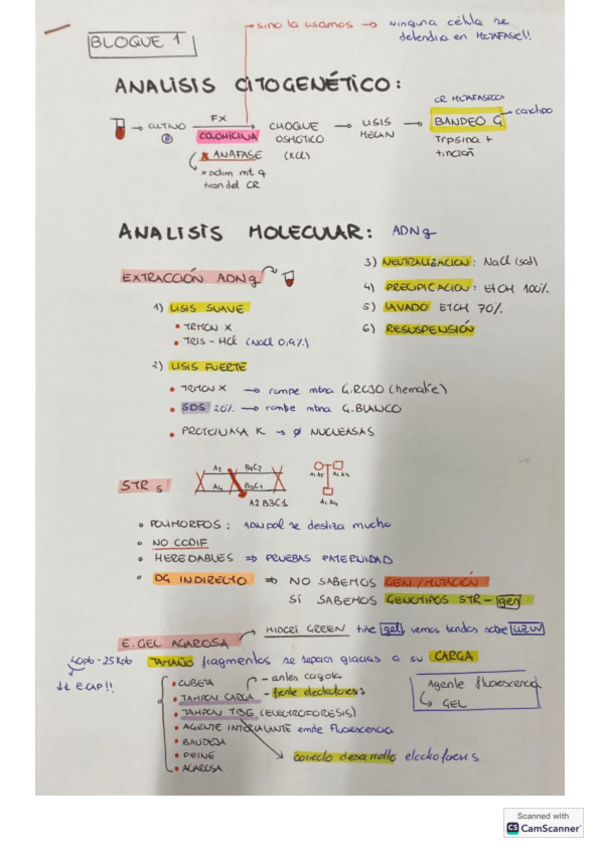 BLOQUE 1
sino la usamos → ninguna célula se
detendría en METAFASE!!
ANALISIS CITOGENÉTICO:
→ CULTIVO → FX
COLCHICINA
CHOQUE
OSMÓTICO
(KCl)
→ LISIS
MECAN
→ CR METAFÁSICO
BANDEO G
Tripsina +
tinción
x ANAFASE
ANALISIS MOLECULAR: ADNg
EXTRACCIÓN ADNg
1) LISIS SUAVE
• TRITON X
• TRIS-HCl (NaCl 0,9%)
2) LISIS FUERTE
• TRITON X → rompe mbna G.ROJO (hematíe)
• SDS 20% → rombe mbna G.BLANCO
• PROTEINASA K → Ø NUCLEASAS
3) NEUTRALIZACION: NaCl (sat)
4) PRECIPICACION: ETOH 100%
5) LAVADO ETOH 70%
6) RESUSPENSIÓN
STR s
A2 B3C2
A4 B3C1
A2 B3C1
• POLIMORFOS: ADN pol se desliza mucho
• NO CODIF
• HEREDABLES ⇒ PRUEBAS PATERNIDAD
• DG INDIRECTO ⇒ NO SABEMOS GEN/MUTACIÓN
SÍ SABEMOS GENOTIPOS STR-gen
E. GEL AGAROSA
→ MIDORI GREEN tiñe gel, vemos bandas sobre
TAMAÑO fragmentos se separan gracias a su CARGA
↓↓ E CAP!!
• CUBETA
• TAMPON CARGA - frente electroforesis
• TAMPON TBG (ELECTROFORESIS)
• AGENTE INTERCALANTE emite fluorescencia
• BANDEJA
• PEINE
• AGAROSA
→ correcto desarrollo electroforesis
Agente fluorescencia
↳ GEL
Scanned with
CS CamScanner